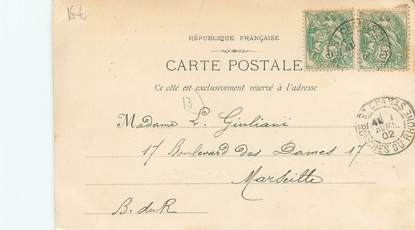 15 €
RÉPUBLIQUE FRANÇAISE
CARTE POSTALE
Ce côté est exclusivement réservé à l'adresse
13
Madame L. Giuliani
17 Boulevard des Dames 17
Marseille
B. du R
ST CHAMAS
02
BCHES DU RHONE